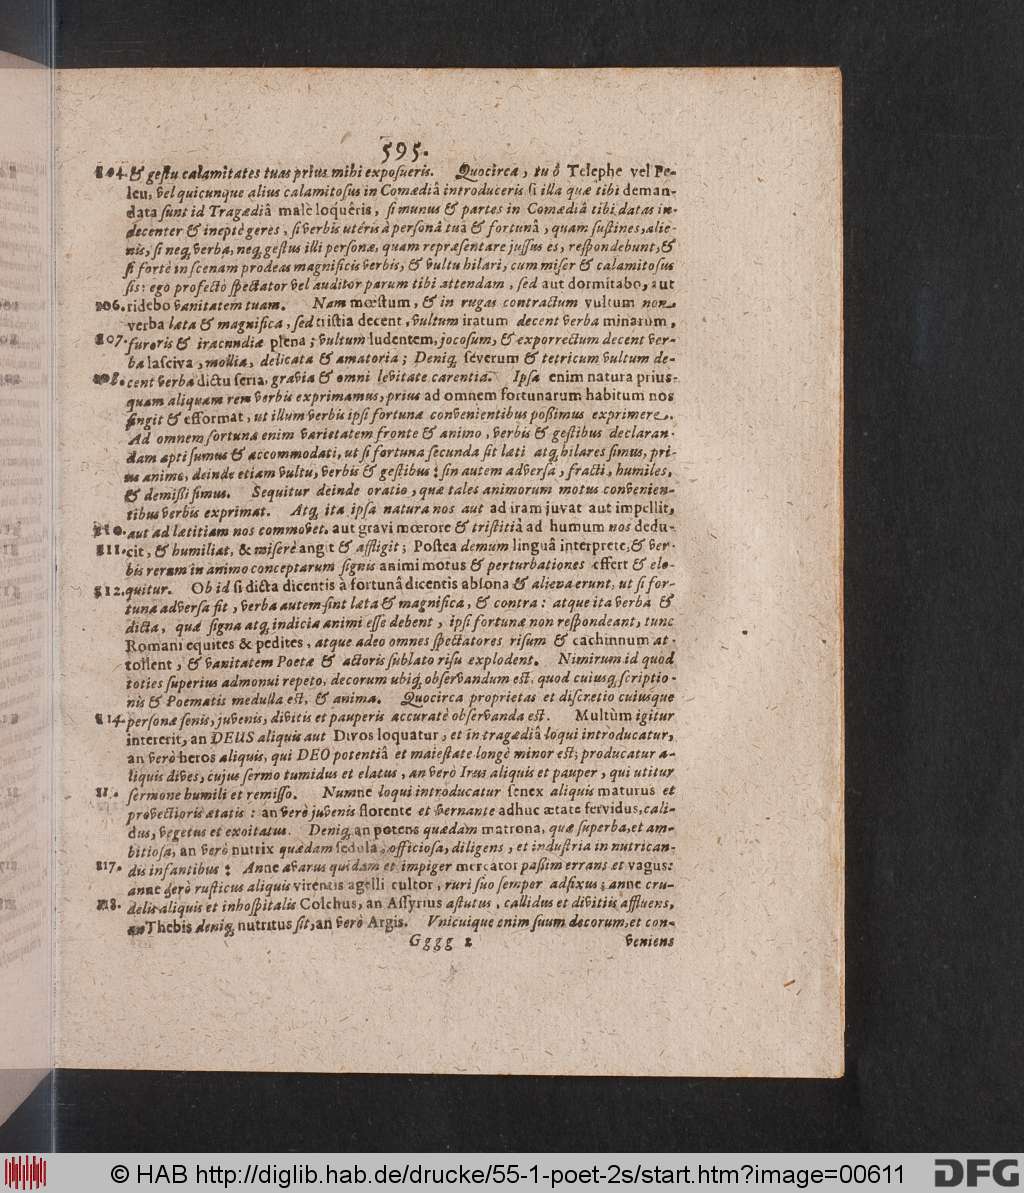 595.
104. & gestu calamitates tuas prius mihi exposueris. Quocirca, tu ô Telephe vel Pe-
leu, vel quicunque alius calamitosus in Comædiâ introduceris si illa quæ tibi deman-
data sunt id Tragædiâ malè loquêris, si munus & partes in Comædiâ tibi datas in-
decenter & ineptè geres, si verbis utêris à personâ tuâ & fortunâ, quam sustines, alie-
nis, si neq; verba, neq; gestus illi personæ, quam repræsentare jussus es, respondebunt, &
si fortè in scenam prodeas magnificis verbis, & vultu hilari, cum miser & calamitosus
sis: ego profectò spectator vel auditor parum tibi attendam, sed aut dormitabo, aut
106. ridebo vanitatem tuam. Nam mœstum, & in rugas contractum vultum non
verba læta & magnifica, sed tristia decent, vultum iratum decent verba minarum,
107. furoris & iracundiæ plena; vultum ludentem, jocosum, & exporrectum decent ver-
ba lasciva, mollia, delicata & amatoria; Deniq; severum & tetricum vultum de-
108. cent verba dictu seria, gravia & omni levitate carentia. Ipsa enim natura prius-
quam aliquam rem verbis exprimamus, prius ad omnem fortunarum habitum nos
fingit & efformat, ut illum verbis ipsi fortunæ convenientibus possimus exprimere.
Ad omnem fortunæ enim varietatem fronte & animo, verbis & gestibus declaran-
dam apti sumus & accommodati, ut si fortuna secunda sit læti atq; hilares simus, pri-
us animo, deinde etiam vultu, verbis & gestibus: sin autem adversa, fracti, humiles,
& demissi simus. Sequitur deinde oratio, quæ tales animorum motus convenien-
tibus verbis exprimat. Atq; ita ipsa natura nos aut ad iram juvat aut impellit,
110. aut ad lætitiam nos commovet, aut gravi mœrore & tristitiâ ad humum nos dedu-
111. cit, & humiliat, & miserè angit & affligit; Postea demum linguâ interprete, & ver-
bis rerum in animo conceptarum signis animi motus & perturbationes effert & elo-
112. quitur. Ob id si dicta dicentis à fortunâ dicentis absona & aliena erunt, ut si for-
tuna adversa sit, verba autem sint læta & magnifica, & contra: atque ita verba &
dicta, quæ signa atq; indicia animi esse debent, ipsi fortunæ non respondeant, tunc
Romani equites & pedites, atque adeo omnes spectatores risum & cachinnum at-
tollent, & vanitatem Poetæ & actoris sublato risu explodent. Nimirum id quod
toties superius admonui repeto, decorum ubiq; observandum est, quod cuiusq; scriptio-
nis & Poematis medulla est, & anima. Quocirca proprietas et discretio cuiusque
114. personæ senis, juvenis, divitis et pauperis accuratè observanda est. Multùm igitur
intererit, an DEUS aliquis aut Divos loquatur, et in tragædiâ loqui introducatur,
an verò heros aliquis, qui DEO potentiâ et maiestate longè minor est; producatur a-
liquis dives, cujus sermo tumidus et elatus, an verò Irus aliquis et pauper, qui utitur
sermone humili et remisso. Numne loqui introducatur senex aliquis maturus et
provectioris ætatis: an verò juvenis florente et vernante adhuc ætate fervidus, cali-
dus, vegetus et excitatus. Deniq; an potens quædam matrona, quæ superba, et am-
bitiosa, an verò nutrix quædam sedula, officiosa, diligens, et industria in nutrican-
117. dis infantibus: Anne avarus quidam et impiger mercator passim errans et vagus:
anne verò rusticus aliquis virentis agelli cultor, ruri suo semper adfixus; anne cru-
118. delis aliquis et inhospitalis Colchus, an Assyrius astutus, callidus et divitiis affluens,
an Thebis deniq; nutritus sit, an verò Argis. Vnicuique enim suum decorum, et con-
Gggg 2 veniens
© HAB http://diglib.hab.de/drucke/55-1-poet-2s/start.htm?image=00611
DFG